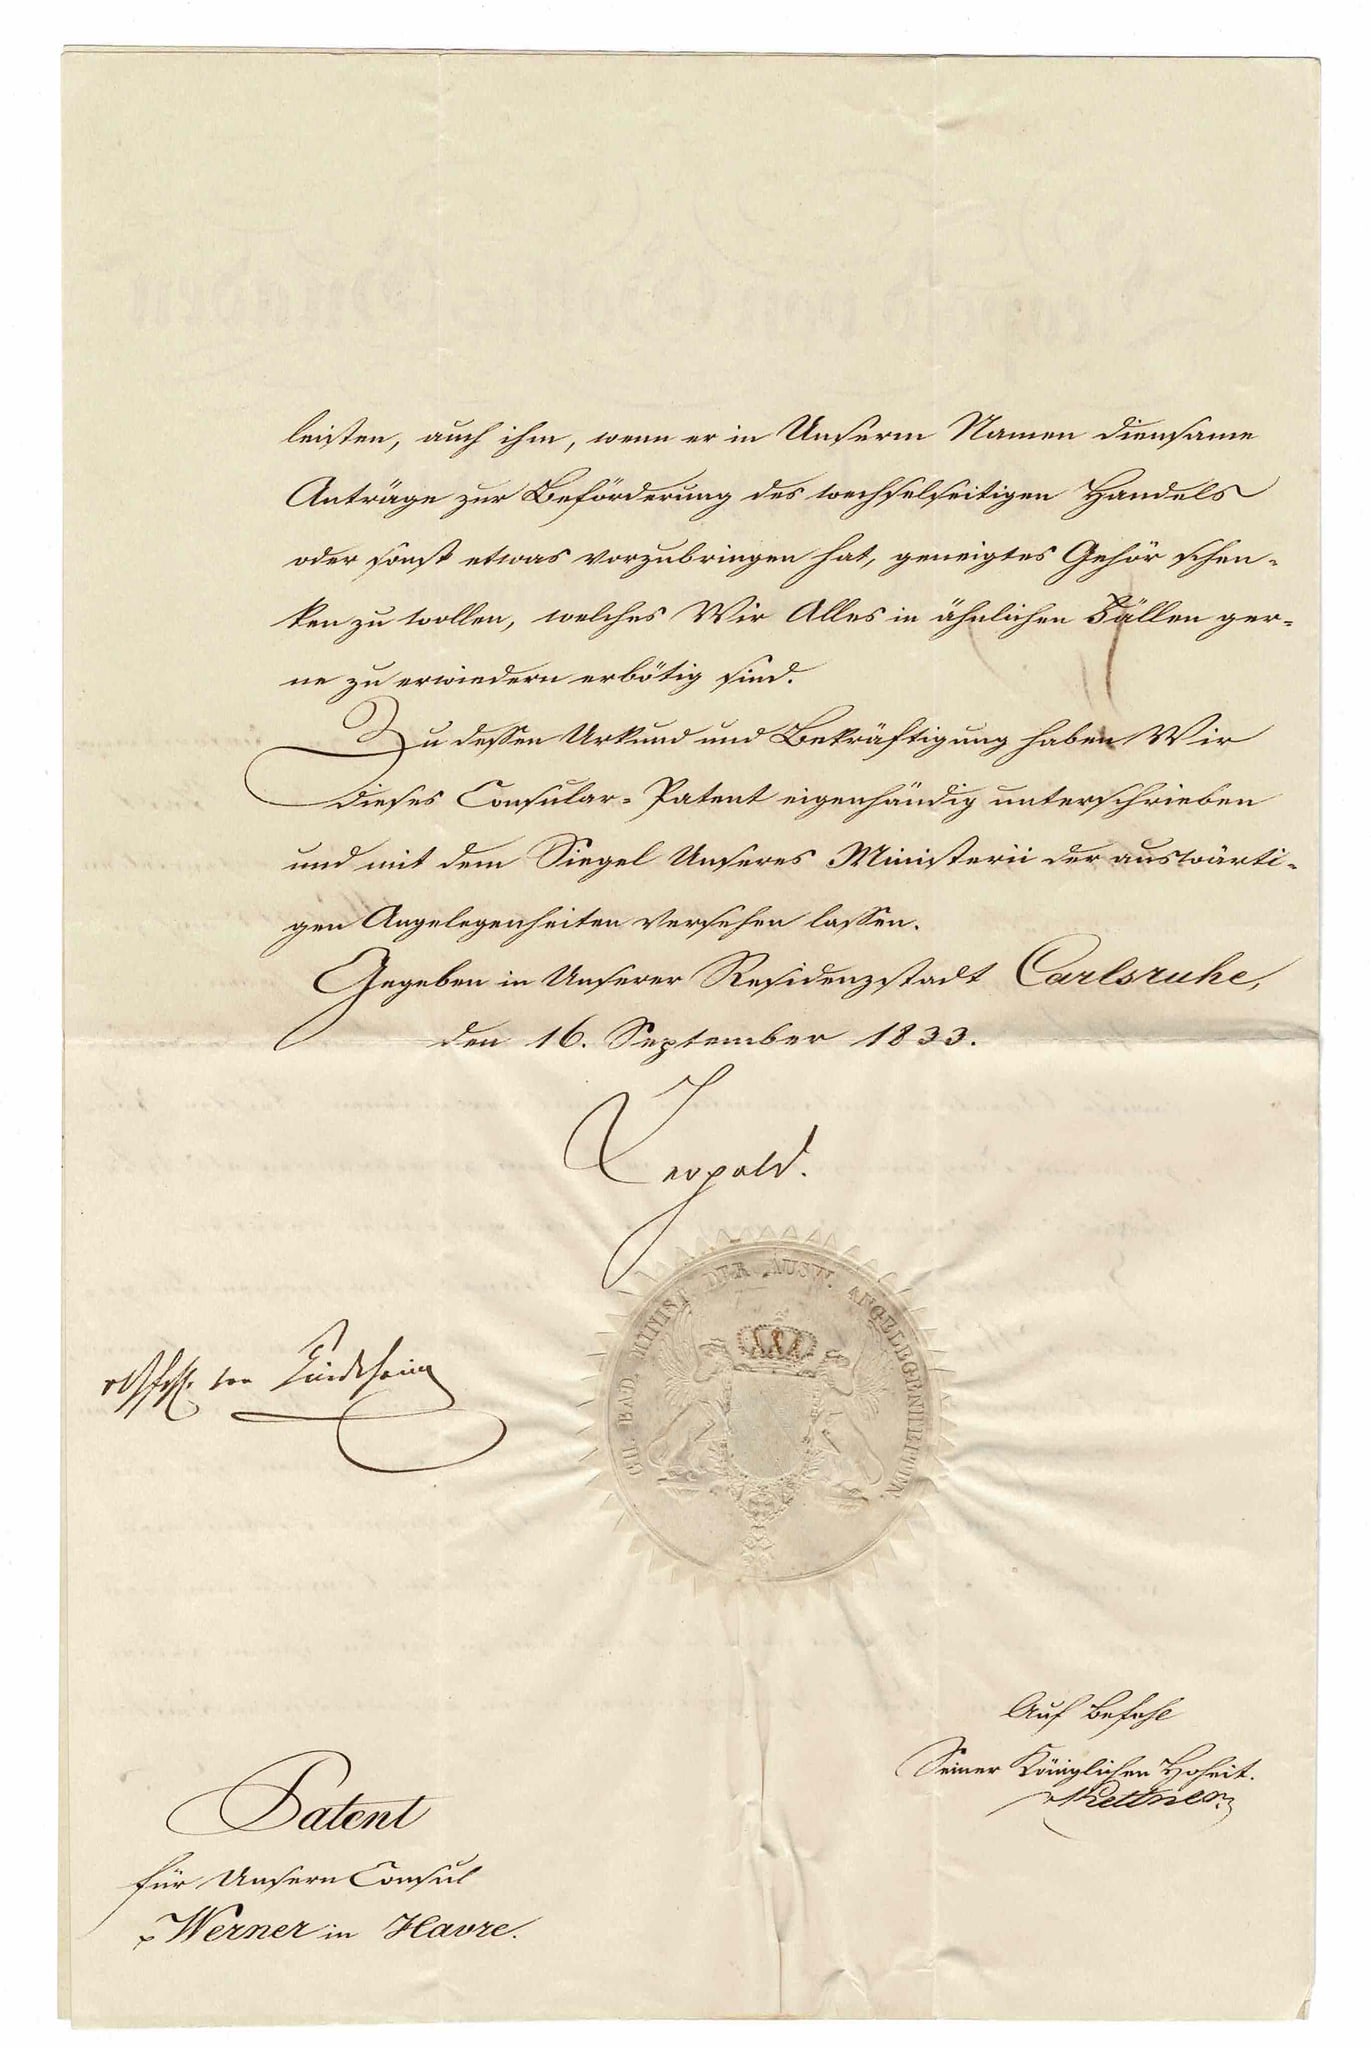 leisten, auch ihm, wenn er in Unserm Namen diensame
Anträge zur Beförderung des wechselseitigen Handels
oder sonst etwas vorzubringen hat, geneigtes Gehör schen-
ken zu wollen, welches Wir Alles in ähnlichen Fällen ger-
ne zu erwiedern erbötig sind.
Zu dessen Urkund und Bekräftigung haben Wir
dieses Consular-Patent eigenhändig unterschrieben
und mit dem Siegel Unseres Ministerii der auswärti-
gen Angelegenheiten versehen lassen.
Gegeben in Unserer Residenzstadt Carlsruhe,
den 16. September 1833.
Leopold.
GH. BAD. MINIST. DER AUSW. ANGELEGENHEITEN.
von
Auf Befehl
Seiner Königlichen Hoheit.
Kettner
Patent
für Unsern Consul
Werner in Havre.